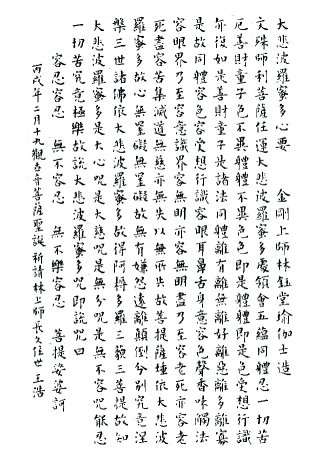 大悲波羅蜜多心要　金剛上師林鈺堂瑜伽士造
文殊師利菩薩任運大悲波羅蜜多處領會五蘊同體忍一切苦
厄善財童子色不異體體不異色色即是體體即是色受想行識
亦復如是善財童子是諸法同體離有無離好離惡離多離寡
是故同體容色容受想行識容眼耳鼻舌身意容色聲香味觸法
容眼界乃至容意識界容無明亦容無明盡乃至容老死亦容老
死盡容苦集滅道無慈亦無失以無所失故菩提薩埵依大悲波
羅蜜多故心無罣礙無罣礙故無有嫌怨遠離顛倒分別究竟涅
槃三世諸佛依大悲波羅蜜多故得阿耨多羅三藐三菩提故知
大悲波羅蜜多是大心咒是大慈咒是無分咒是無不容咒能忍
一切苦究竟極樂故說大悲波羅蜜多咒即說咒曰
容忍容忍　無不容忍　無不樂容忍　菩提娑婆訶
丙戌年二月十九觀世音菩薩聖誕 祈請林上師長久住世 王浩